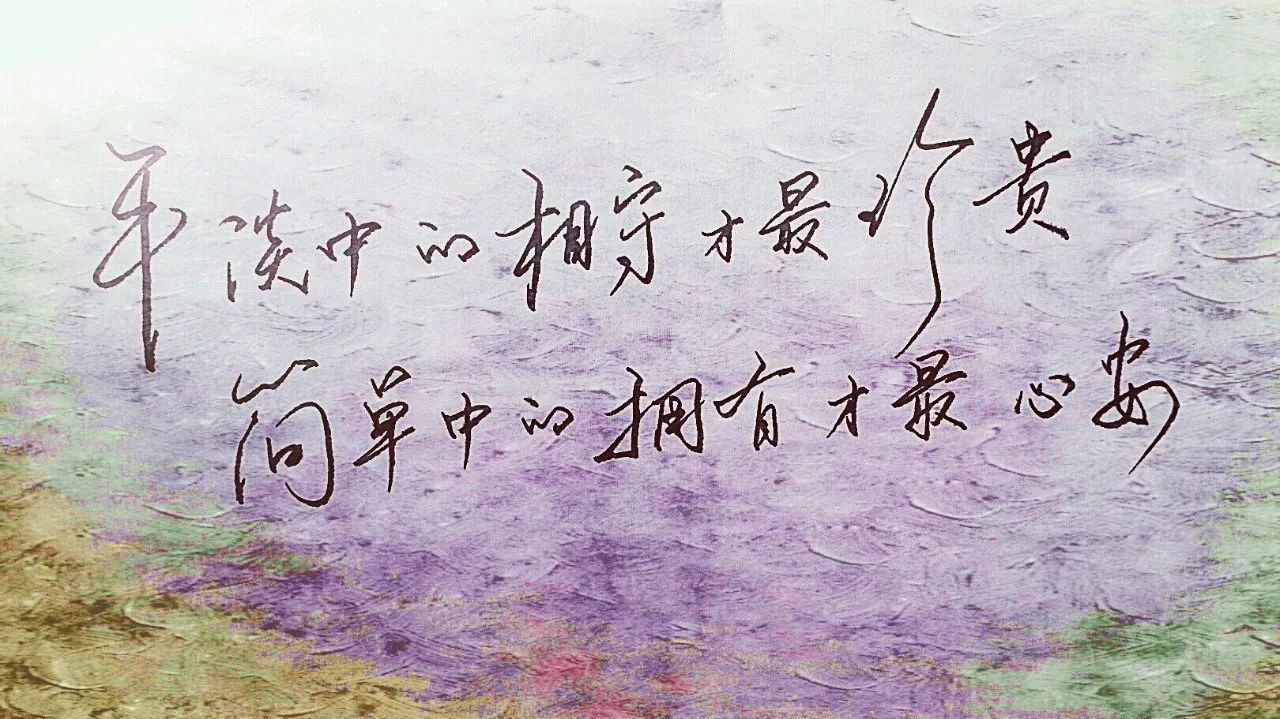 平淡中的相守才最珍贵
简单中的拥有才最心安